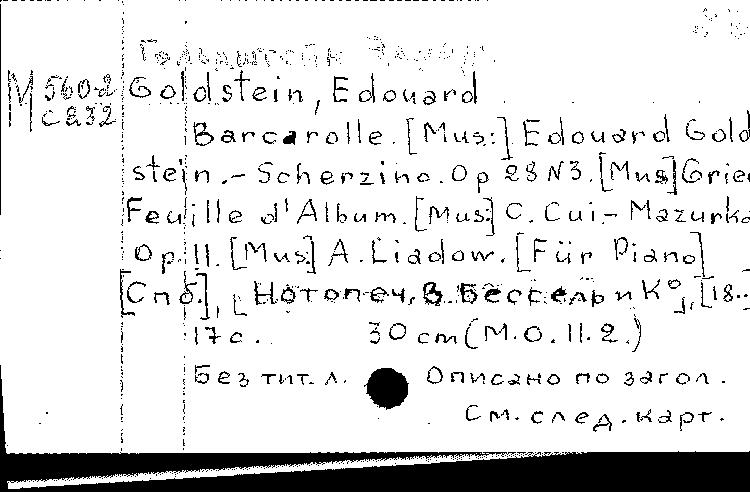 Гольдштейн Эдуард.
М 560-2 Goldstein, Edouard
с 232
Barcarolle. [Mus:] Edouard Gold
stein. – Scherzino. Op 28 N3. [Mus] Grie
Feuille d'Album. [Mus:] C. Cui. – Mazurka
Op. 11. [Mus:] A. Liadow. [Für Piano]
[Спб.], [Нотопеч. В. Бессель и К°], [18..
17 с. 30 cm (М.О. 11. 2.)
Без тит. л. Описано по загол.
См. след. карт.